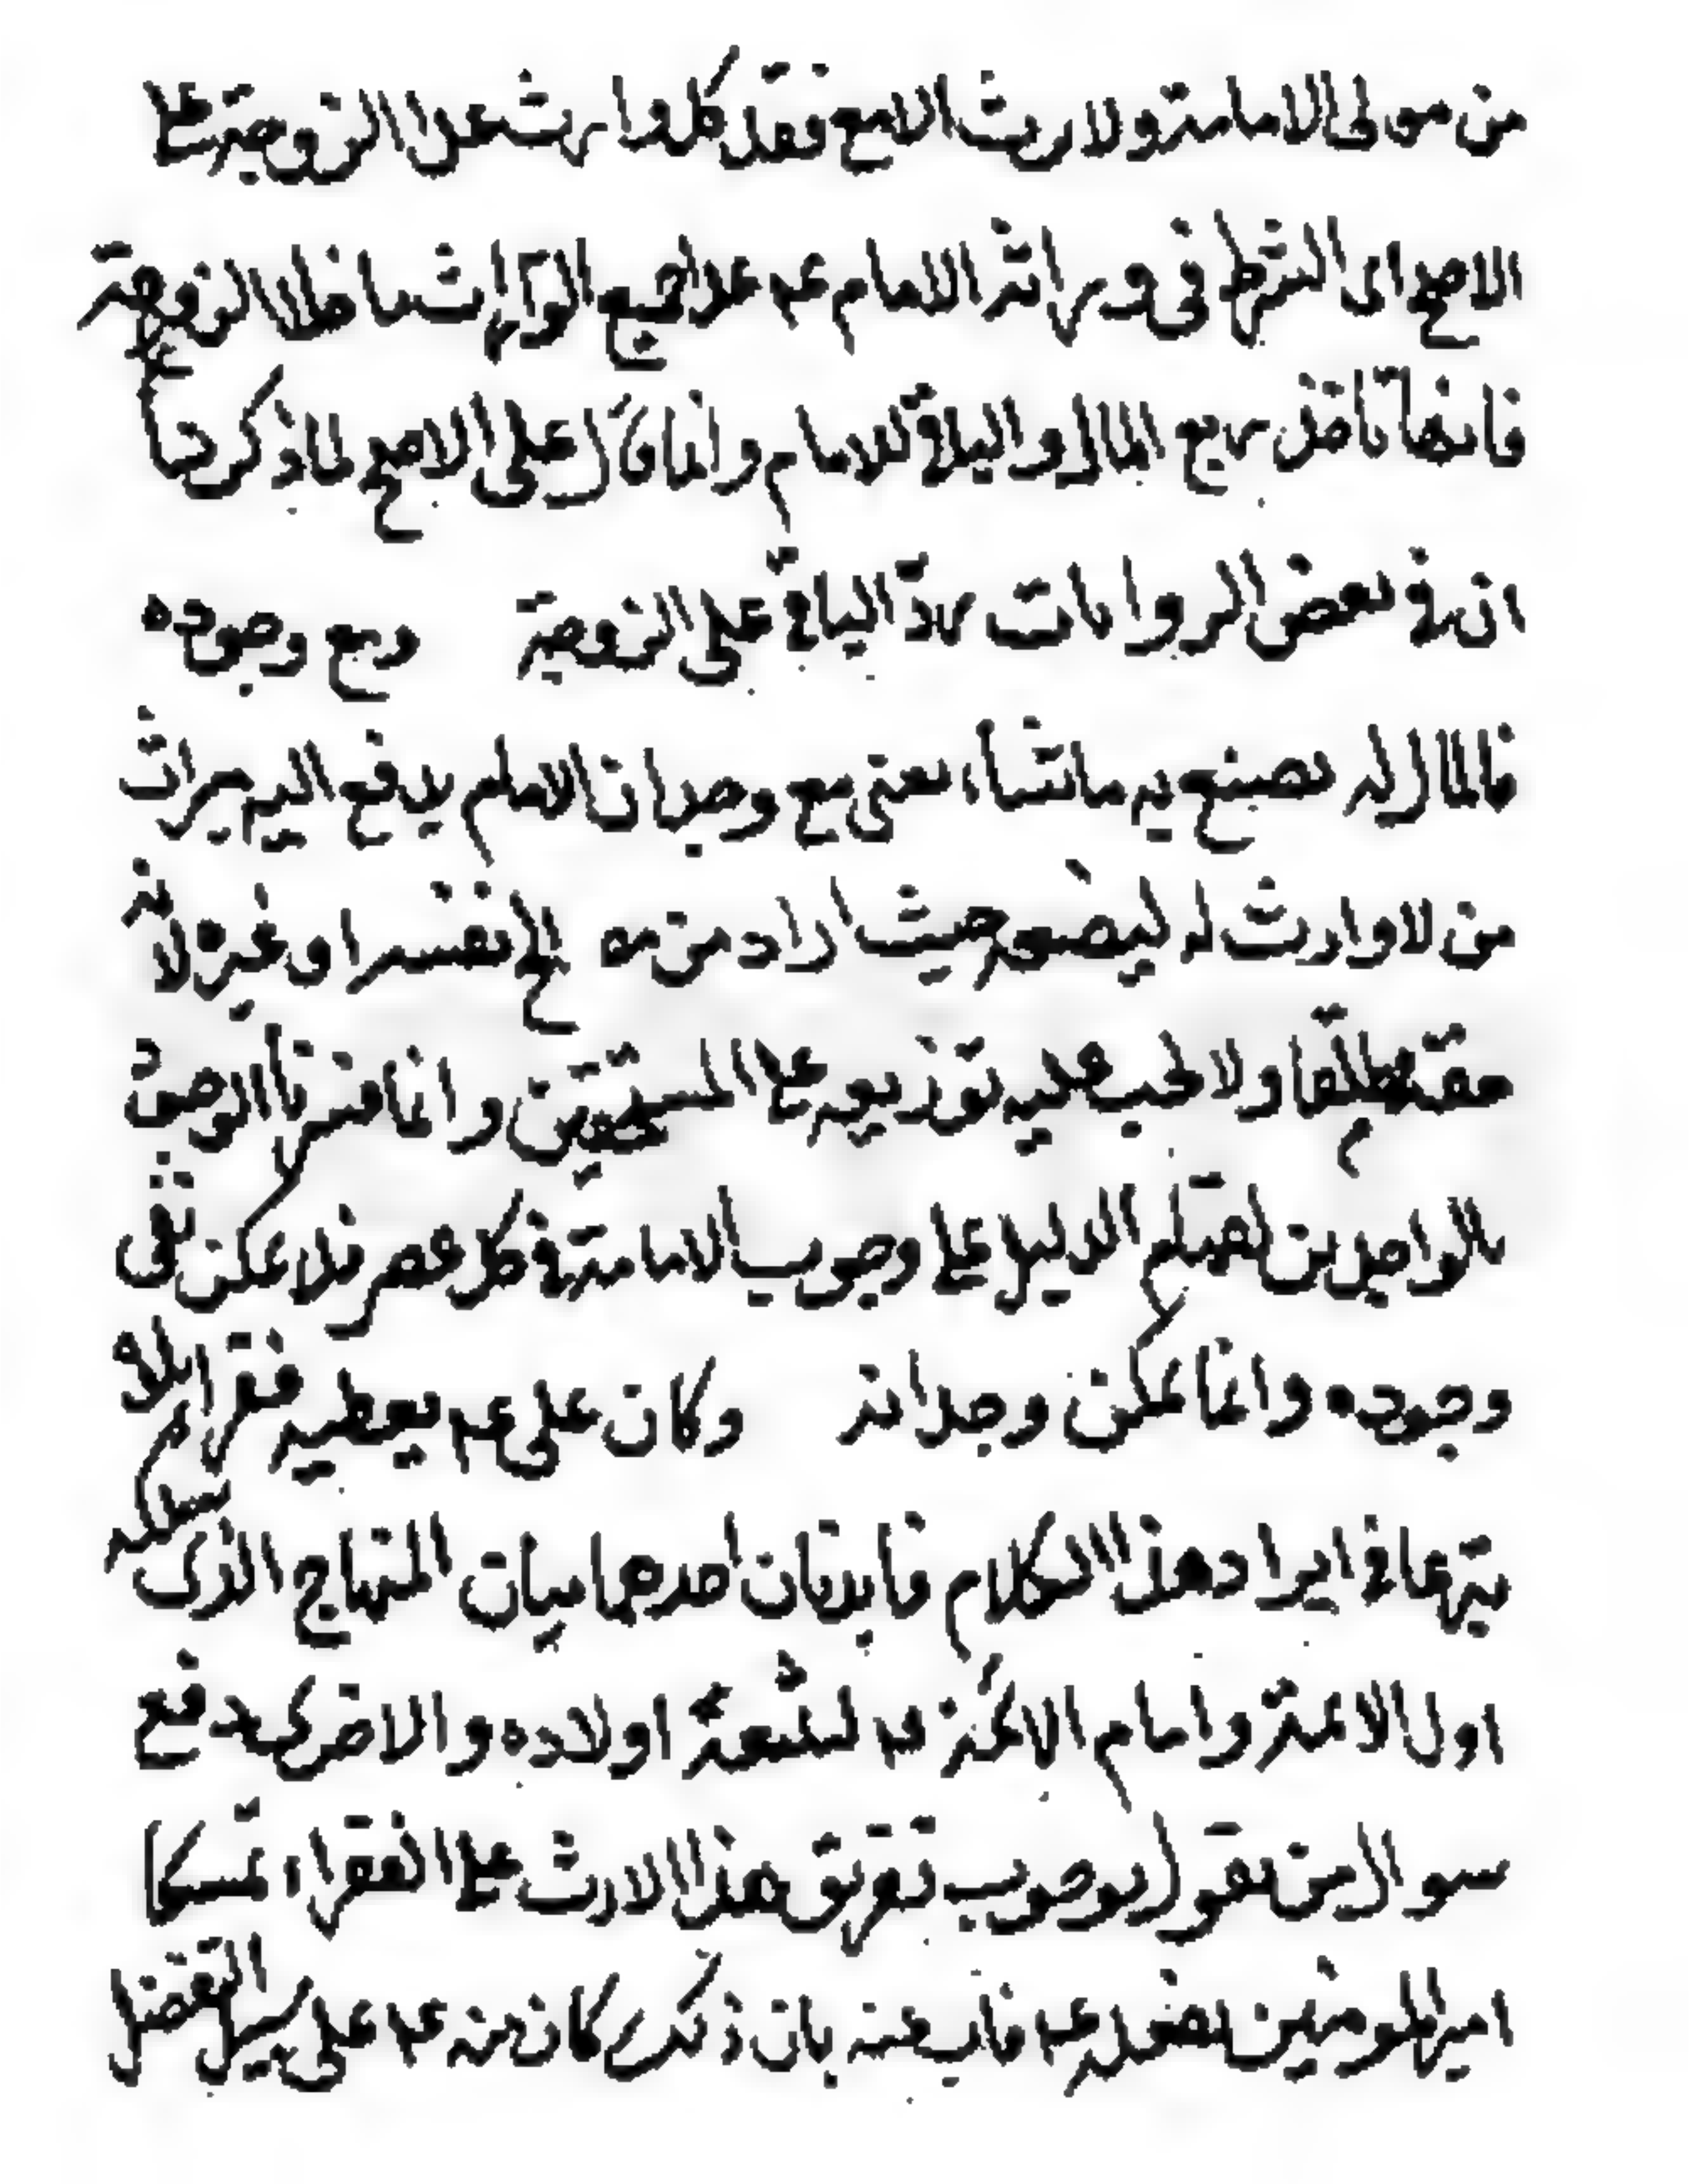 من مولى الامامة ولا يرث الا مع فقد كل وارث عدا الزوجة على
الاصح اى الشرط فى وراثة الامام عم عدا جميع الوراث ما خلا الزوجة
فانها تاخذ ربع المال والبقية للامام وانما قال على الاصح لما ذكر جماعة
ان فى بعض الروايات رد الباقى على الزوجة ومع وجوده
فالمال له يصنع به ما شاء يعنى مع وجدان الامام يدفع اليه ميراث
من لا وارث له ليضعه حيث اراد من مصالح نفسه او غيره لانه
حقه مطلقا ولا يجب عليه توزيعه على المستحقين وانما فسرنا الوجود
بالوجدان لقيام الدليل على وجوب الامامة فى كل عصر فلا يمكن نفى
وجوده وانما يمكن وجدانه وكان على عم يعطيه فقراء بلد
تبرعا فى ايراد هذا الكلام فايدتان احدهما بيان المنهاج الذى سلكه
اول الائمة وامام الائمة عم لشيعة اولاده والاخرى دفع
سوال من يقول بوجوب تفريق هذا الارث على الفقراء تمسكا
امير المومنين بفعله عم فاجاب عنه بان ذلك كان منه عم على سبيل التفضل